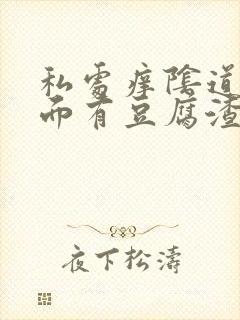 私處痒陰道
而有豆腐渣
夜下松濤